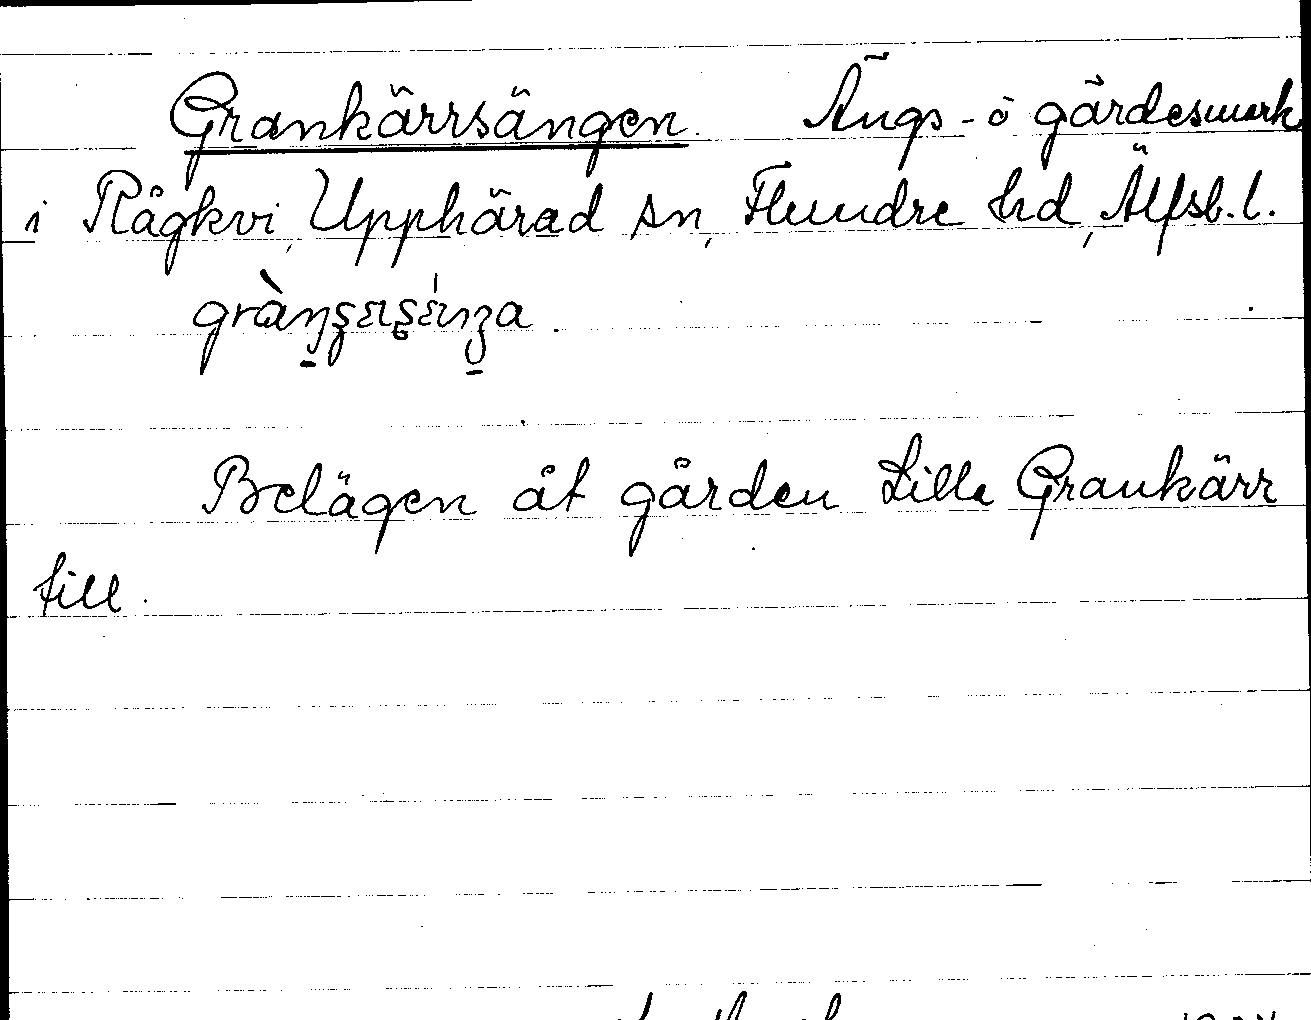 Grankärrsängen. Ängs- o gärdesmark
i Rågkvi, Upphärad sn, Flundre hd, Älfsb. l.
Belägen åt gården Lilla Grankärr
till.